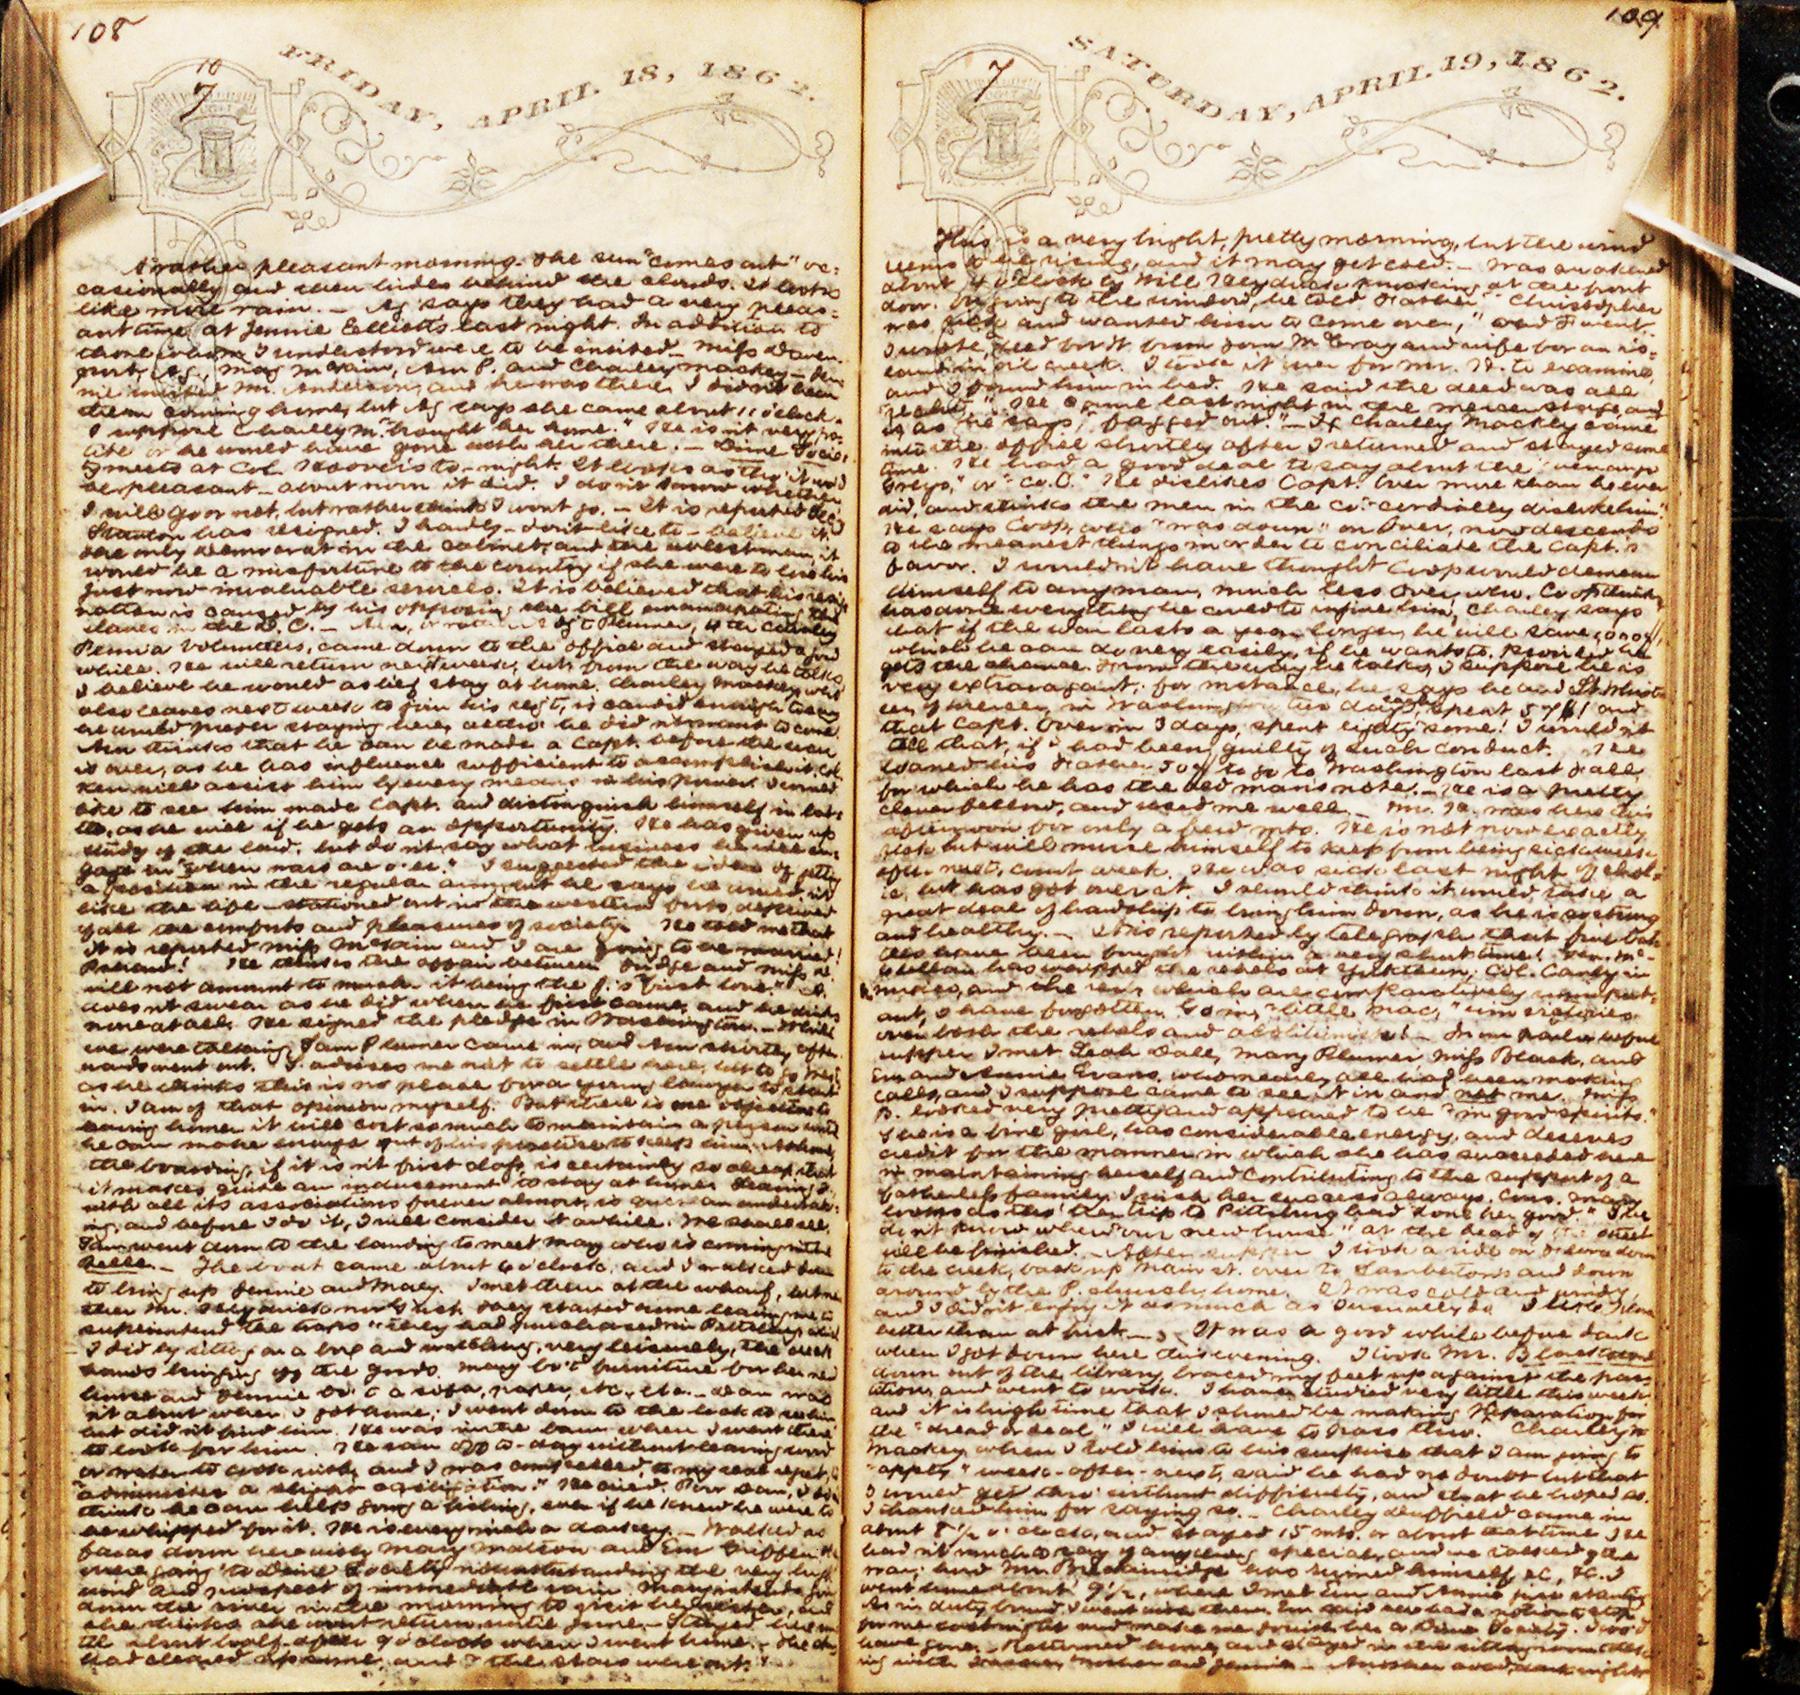 108
10
7
FRIDAY, APRIL 18, 1862.
A rather pleasant morning. The sun "comes out" oc-
casionally and then hides behind the clouds. It looks
like more rain. – Ag says they had a very pleas-
ant time at Jennie Elliotts last night. In addition to
those whom I understood were to be invited – Miss
Ag, May McCain, Am P. and Charley Mackey –
nie invited Mr. Anderson, and he was there. I didn't hear
them coming home, but Ag says she came about 11 o'clock.
I suppose Charley M. "brought her home." He isn't very po-
lite or he would have gone with her there. – Dime Socie-
ty meets at Col. Hoovers to-night. It looks as tho' it wo'd
be pleasant – about noon it did. I don't know whether
I will go or not, but rather think I wont go. – It is reported
Stanton has resigned. I hardly – don't like to – believe it.
the only democrat in the cabinet, and the ablest man, it
would be a misfortune to the country if she were to lose his
just now invaluable services. It is believed that his resig-
nation is caused by his opposing the bill emancipating the
slaves in the D.C. – Plumer,
Penn'a Volunteers, came down to the office and stayed a good
while. He will return next week, but from the way he talks
I believe he would as lief stay at home. Charley Mackey who
also leaves next week to join his regt, is candid enough to say
he would prefer staying here, altho' he did n't want to come.
Am thinks that he can be made a Capt. before the war
is over, as he has influence sufficient to accomplish it. Col.
Ken will assist him by every means in his power. I would
like to see him made Capt. and distinguish himself in bat-
tle, as he will if he gets an opportunity. He has given up
study of the law, but don't say what business he will en-
gage in "when wars are o'er." I suggested the idea of getting
a position in the regular army, but he says he would n't
like the life – stationed out in the western forts, deprived
of all the comforts and pleasures of society. He told me that
it is reported Miss McCain and I are going to be married!
Pshaw! He thinks the affair between Judge and Miss
will not amount to much, it being the J.'s "first love."
does n't swear as he did when he first came, and he drinks
none at all. He signed the pledge in Washington. – While
we were talking, Sam Plumer came in, and Am shortly after-
wards went out. S. advises me not to settle here, but to go West
as he thinks this is no place for a young lawyer to start
in. I am of that opinion myself. But there is one objection to
leaving home, it will cost so much to maintain a person until
he can make enough out of his practice to keep him. At home,
the boarding, if it is n't first class, is certainly so cheap that
it makes quite an inducement to stay at home. Leaving it
with all its associations forever almost, is quite an undertak-
ing, and before I do it, I will consider it awhile. We shall see.
Sam went down to the landing to meet May who is coming on the
Belle. – The boat came about 4 o'clock, and I walked down
to bring up Jennie and Mary. I met them at the wharf,
They started home leaving me to
superintend the traps "they had purchased in Pittsburg" which
I did by sitting on a box and watching, very leisurely, the deck
hands bringing off the goods. Mary bo't furniture for her new
house and Jennie bo't a sofa, paper, etc., etc. – Sam was
n't about when I got home; I went down to the lock to
but did n't find him. He was in the barn when I went there
to look for him. He ran off to-day without leaving wood
or water to cook with, and I was compelled, to my real regret,
"administer a slight castigation." He cried. Poor Sam, I don't
think he can help going a fishing, even if he knew he were to
be whipped for it. He is every inch a darkey. – Walked as
far as down here with Mary Matson and Em Griffin. We
were going to Dime Society notwithstanding the very high
wind and prospect of immediate rain. Mary intends going
down the river in the morning to visit her sister, and
she thinks she wont return until June. – Stayed here un-
til about half after 9 o'clock when I went home. – The sky
had cleared up some, and the stars were out.
109
7
SATURDAY, APRIL 19, 1862.
This is a very bright, pretty morning, but the wind
seems to be rising, and it may get cold. – Was awakened
about o'clock by Will Heydrick knocking at the front
door. On going to the window, he told Father "Christopher
was sick and wanted him to come over," and I went.
I wrote deed from John McCray and wife for an is-
land in oil creek. I took it over for Mr. H. to examine,
and I found him in bed. He said the deed was all
"right." He came last night in the mercer stage, and
is as he says, "fagged out." – Charley Mackey came
into the office shortly after I returned and stayed some
time. He had a good deal to say about the "Venango
Greys," or "Co. C." He dislikes Capt. Over more than he ever
did, and thinks the men in the Co. "cordially dislike him."
He says Coop, who "was down" on Over, now descends
to the meanest things in order to conciliate the Capt.'s
favor. I would n't have thought Coop would demean
himself to any man, much less Over, who, Coop thinks,
has done everything he could to injure him. Charley says
that if the war lasts a year longer, he will save
which he can do very easily, if he wants to. Provided he
gets the chance. From the way he talks, I suppose he is
very extravagant; for instance, he says he and
of Mercer, in Washington two days, spent and
that Capt. Over in 3 days, spent eighty some! I would n't
tell that, if I had been guilty of such conduct. He
loaned his Father to go to Washington last Fall,
for which he has the old man's note. – He is a pretty
clever fellow, and used me well. – Mr. H. was here this
afternoon for only a few mts. He is not now exactly
sick but will nurse himself to keep from being sick week
after next, court week. He was sick last night of chol-
ic, but has got over it. I should think it would take a
great deal of hardship to bring him down, as he is so strong
and healthy. – It is reported by telegraph that five bat-
tles have been fought within a very short time! Gen. Mc-
Clellan has whipped the rebels at Yorktown; Col. Canby in
Mexico, and the rest which are comparatively unimport-
ant, I have forgotten. Go in, "little Mac," win victories
over both the rebels and abolitionists! – In our parlor before
supper I met Leah Dale, Mary Plumer, Miss Black, and
Em and Annie Evans, who nearly all had been making
calls, and I suppose came to see it in and not me. Miss
B. looked very pretty and appeared to be "in good spirits."
She is a fine girl, has considerable energy, and deserves
credit for the manner in which she has succeeded here
in maintaining herself and contributing to the support of a
fatherless family. I wish her success always. Cous. Mary
looks as tho' "her trip to Pittsburg had done her good." She
don't know when "our new house" at the head of the street
will be finished. – After supper I took a ride on down
to the creek, back up Main st. over to Lambertons and down
around by the P. church, home. It was cold and windy
and I didn't enjoy it as much as I usually do.
better than at first. – It was a good while before dark
when I got down here this evening. I took Mr. Blackstone
down out of the library, braced my feet up against the par-
tition, and went to work. I have studied very little this week
and it is high time that I should be making preparation for
the "dread ordeal" I will have to pass thro'. Charley
Mackey when I told him to his surprise that I am going to
"apply" week-after-next, said he had no doubt but that
I would get thro' without difficulty, and that he hoped so.
I thanked him for saying so. – Charley Duffield came in
about 8½ o'clock, and stayed 15 mts. or about that time. He
had n't much to say of anything special, and we talked of the
war; how Mr. Breckinridge has ruined himself &c, &c. I
went home about 9½, where I met Em and Annie just starting.
As in duty bound, I went with them. Em said she had a notion to stop
for me last night and make me
have gone. – Returned home, and stayed in the sitting room talk-
ing with Father, Mother and Jennie. – Another dark night.